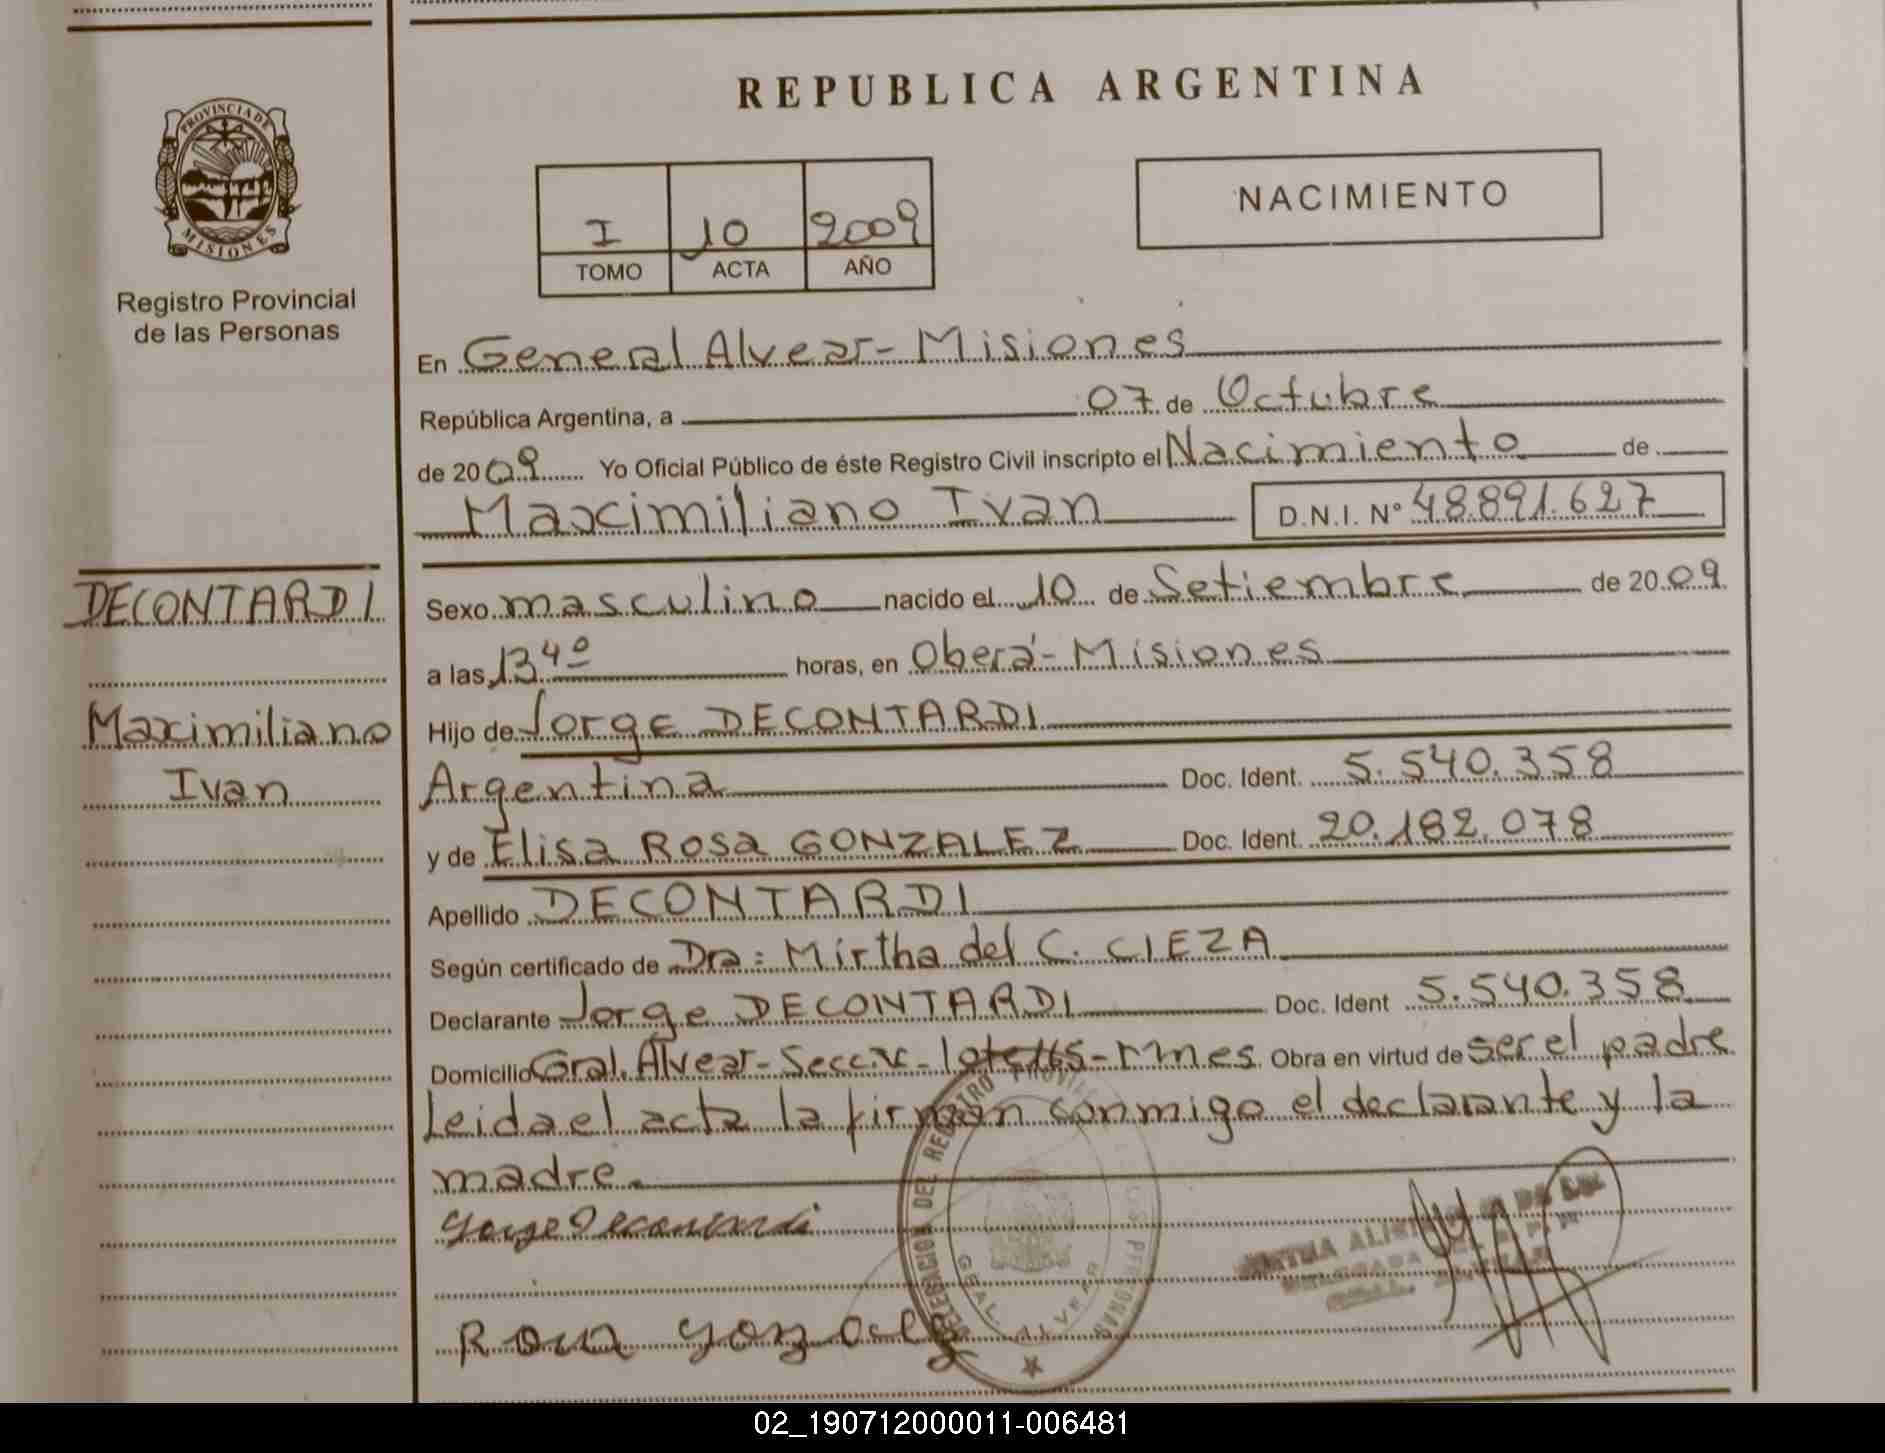 REPUBLICA ARGENTINA
PROVINCIA DE
MISIONES
Registro Provincial
de las Personas
I 10 2009
TOMO ACTA AÑO
NACIMIENTO
En General Alvear - Misiones
República Argentina, a 07 de Octubre
de 2009 Yo Oficial Público de éste Registro Civil inscripto el Nacimiento de
Maximiliano Ivan D.N.I. Nº 48.891.627
DECONTARDI
Maximiliano
Ivan
Sexo masculino nacido el 10 de Setiembre de 2009
a las 13 40 horas, en Oberá - Misiones
Hijo de Jorge DECONTARDI
Argentina Doc. Ident. 5.540.358
y de Elisa Rosa GONZALEZ Doc. Ident. 20.182.078
Apellido DECONTARDI
Según certificado de Dra: Mirtha del C. CIEZA
Declarante Jorge DECONTARDI Doc. Ident 5.540.358
Domicilio Gral. Alvear - Secc. - Mnes. Obra en virtud de ser el padre
Leida el acta la firman conmigo el declarante y la
madre.
Jorge Decontardi
Rosa Gonzalez
DELEGACION DEL REGISTRO PROVINCIAL DE LAS PERSONAS
GRAL. ALVEAR
02_190712000011-006481